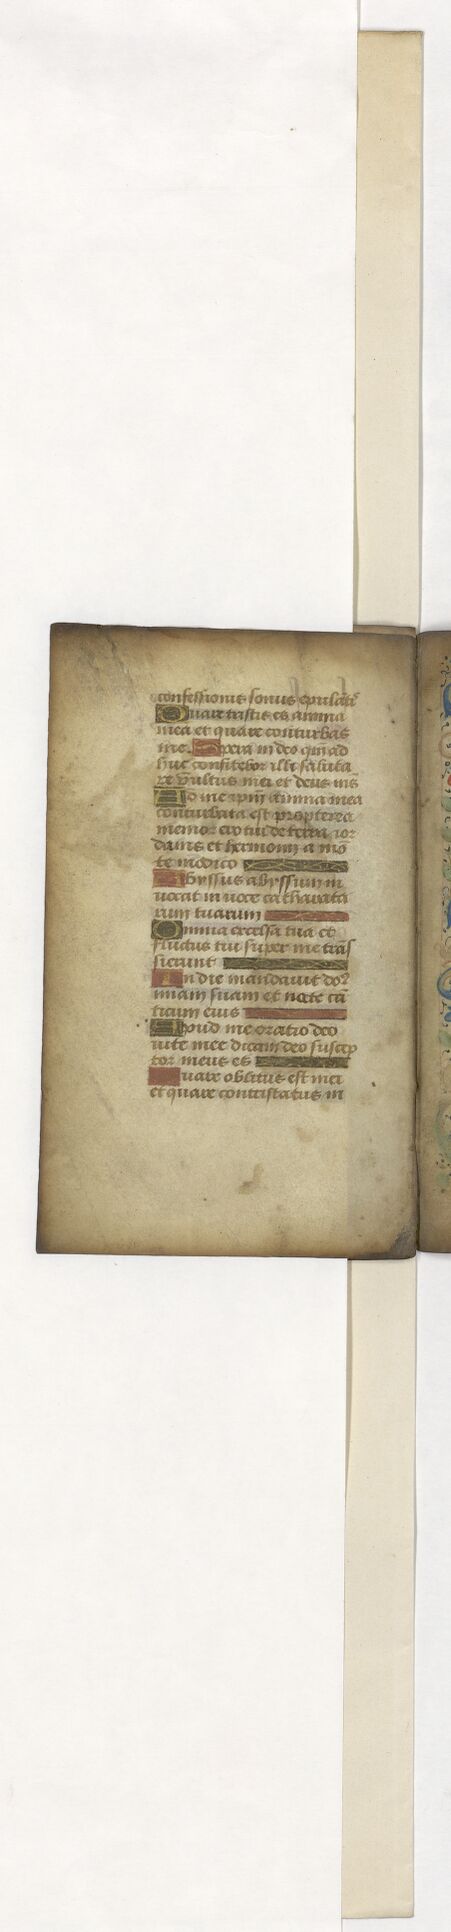 confessionis sonus epulātꝭ
Quare tristis es anima
mea et quare conturbas
me. Spera in deo qm̄ ad
huc confitebor illi saluta
re vultus mei et deus me9
Ad me ipm̄ anima mea
conturbata est propterea
memor ero tui de terra ior
danis et hermonij a mō
te modico
Abyssus abyssum in
uocat in uoce catharata
rum tuarum
Omnia excelsa tua et
fluctus tui super me trās
sierunt
In die mandauit do
minus suam et nocte cā
ticum eius
Apud me oratio deo
uite mee dicam deo suscep
tor meus es
Quare oblitus est mei
et quare contristatus in